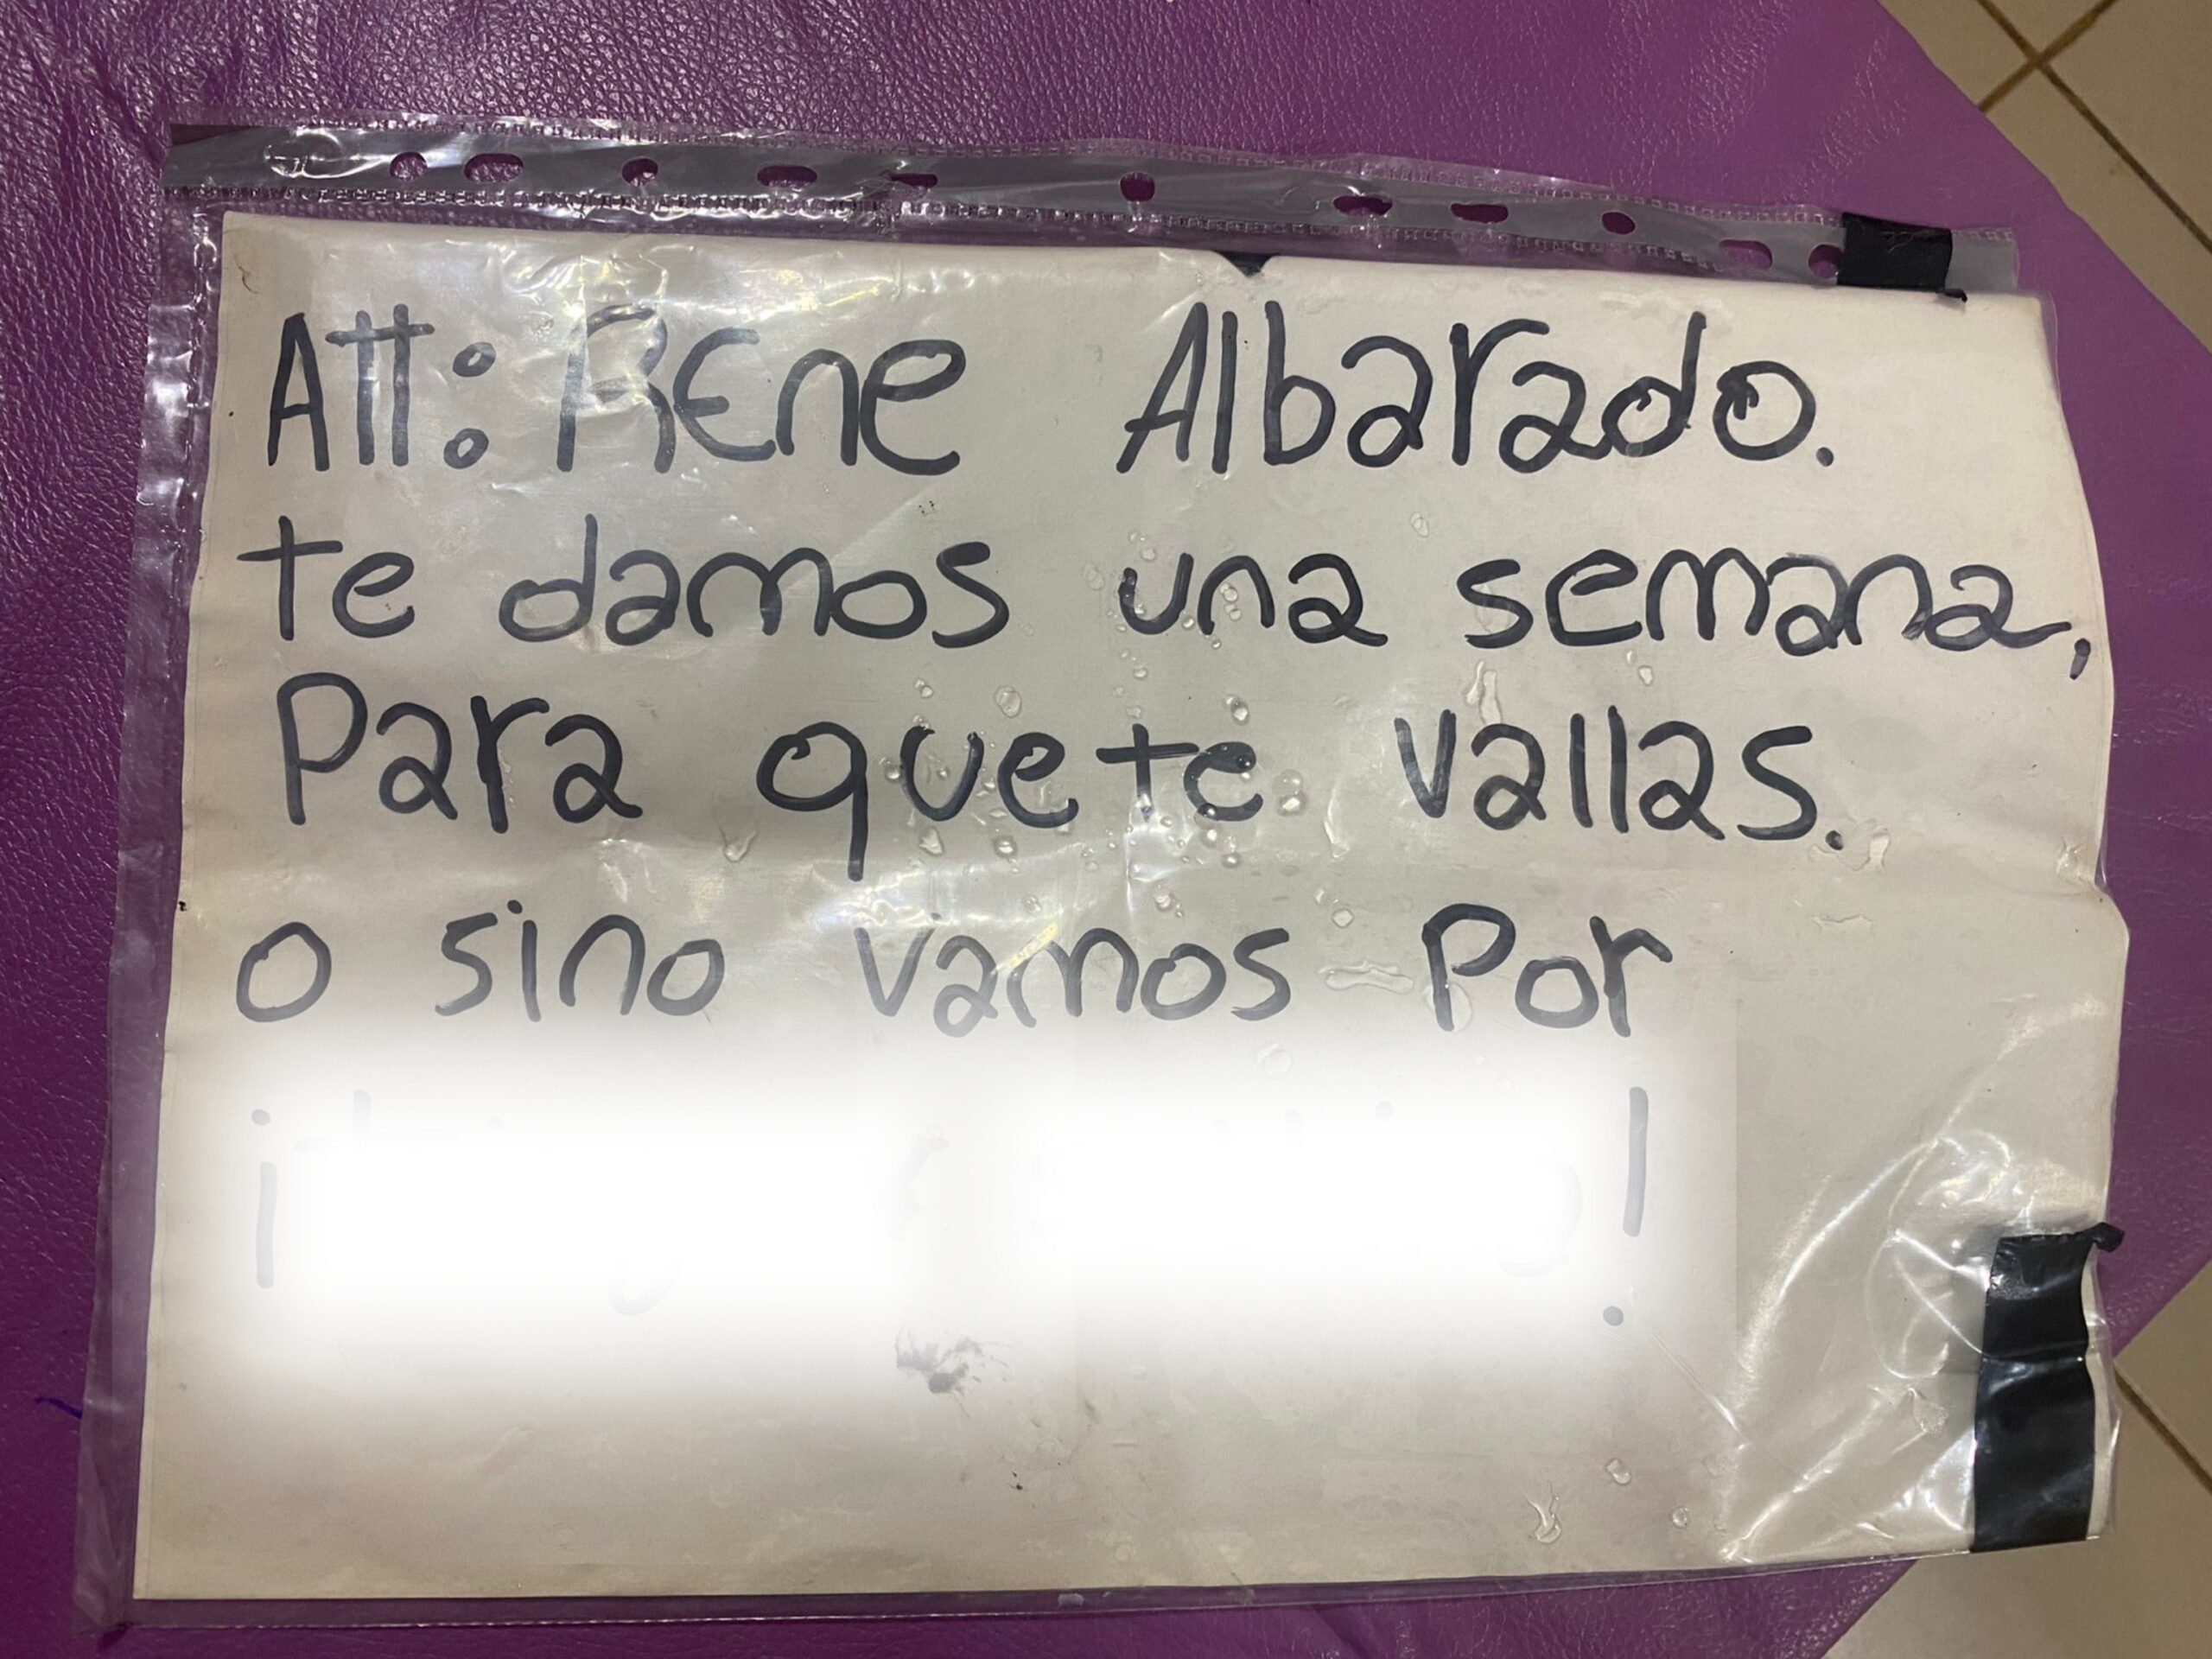 Att: Rene Albarado.
te damos una semana,
Para que te vallas.
o sino vamos Por
¡ !